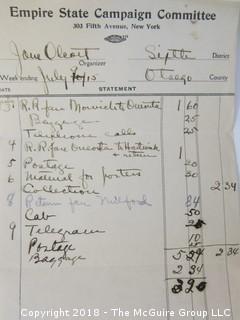 Empire State Campaign Committee
303 Fifth Avenue, New York
Jane Olcott Sixth
Organizer District
Week ending July 10/15 Otsego County
DATE STATEMENT
R.R. fare Norwich to Oneonta 1 60
Baggage 25
Telephone calls 25
4 R.R. fare Oneonta to Hartwick 1
+ return
5 Postage
6 Material for posters 50
Collection 2 34
8 Return fare Milford 84
Cab 50
9 Telegram 25
Postage
Baggage 5 2 34
2 34
Copyright 2018 - The McGuire Group, LLC